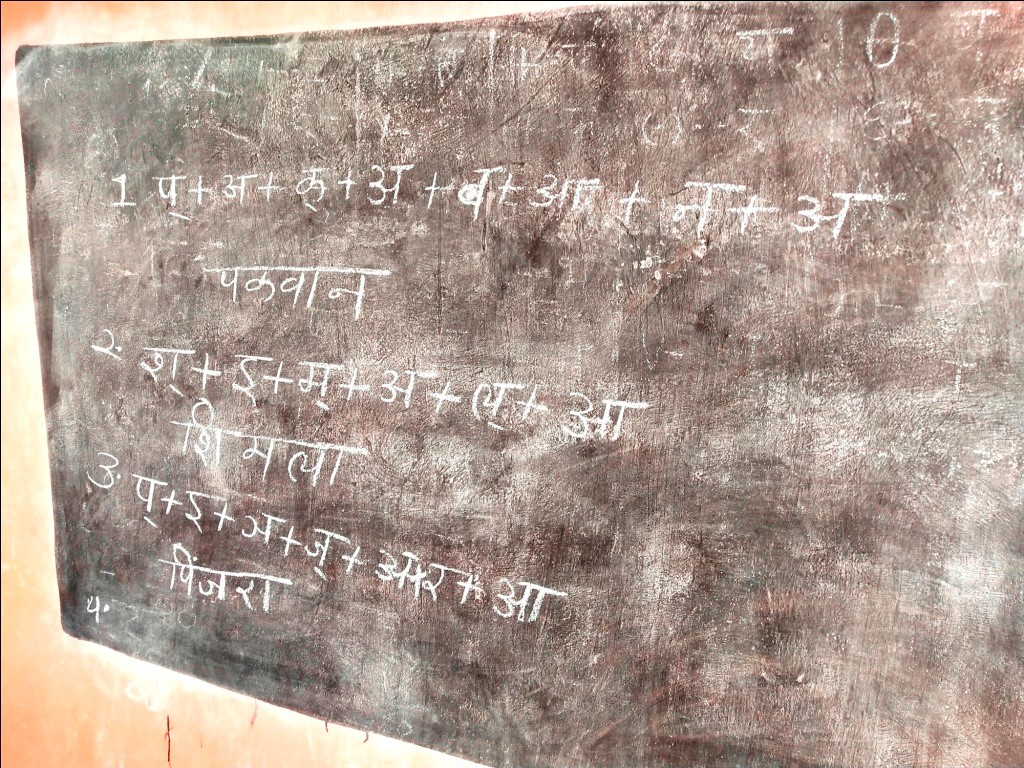 1 प्+अ+क्+अ+व+आ+न+अ
पकवान
२. श्+इ+म्+अ+ल्+आ
शिमला
3. प्+इ+ञ+ज्+अ+र+आ
पिंजरा
४.